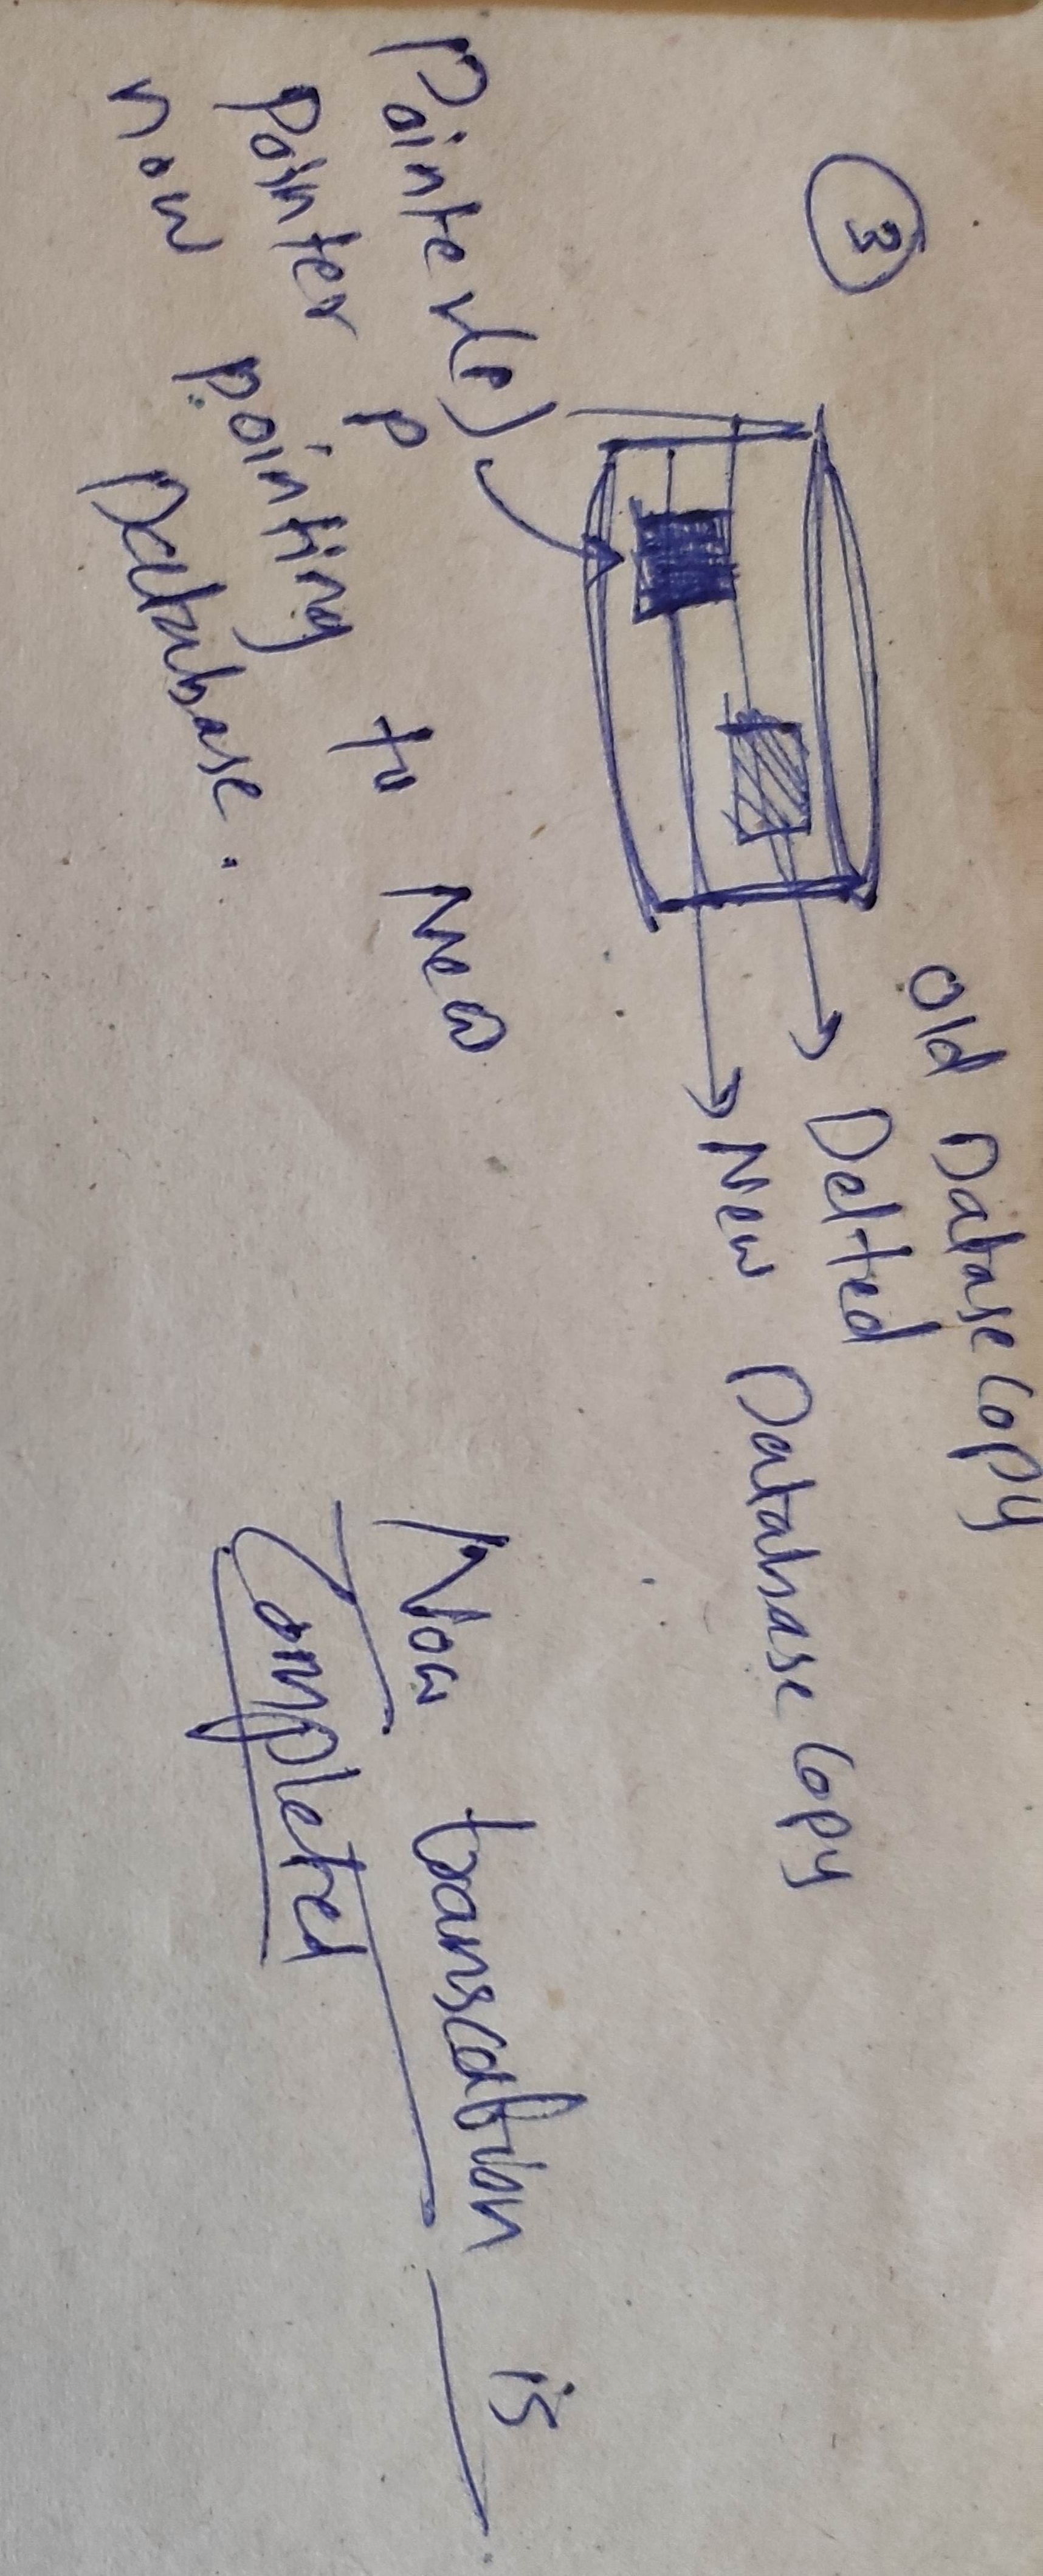 3
Old Datase Copy
Delted
New Database Copy
Pointer(P)
Pointer P
now pointing to New
Database.
Now transcation is
Completed